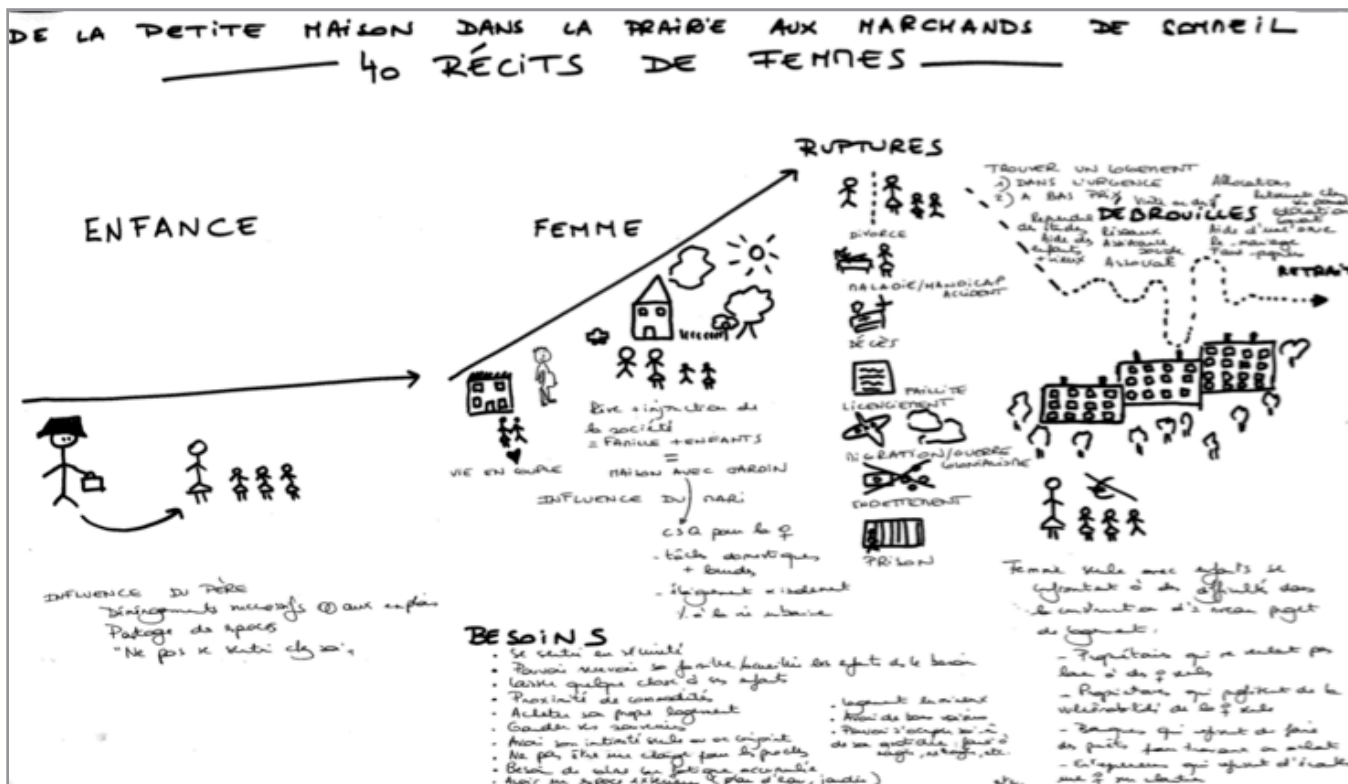 DE LA PETITE MAISON DANS LA PRAIRIE AUX MARCHANDS DE SOMMEIL
40 RÉCITS DE FEMMES
ENFANCE
INFLUENCE DU PÈRE
Déménagements successifs aux emplois
Partage de
"Ne pas se sentir chez soi"
FEMME
VIE EN COUPLE
Rêve + injonction de
la société
= FAMILLE + ENFANTS
=
MAISON AVEC JARDIN
INFLUENCE DU MARI
CSQ pour la ♀
- tâches domestiques
+ lourdes
- éloignement + isolement
% à la vie urbaine
RUPTURES
DIVORCE
MALADIE/HANDICAP
ACCIDENT
DÉCÈS
FAILLITE
LICENCIEMENT
MIGRATION/GUERRE
COLONIALISME
ENDETTEMENT
PRISON
TROUVER UN LOGEMENT
1) DANS L'URGENCE
2) A BAS PRIX
DEBROUILLES
Allocations
Reprendre
des études
Réseaux
Aide des
enfants
Assistance
sociale
Aide d'une
le mariage
Faux-papiers
RETRAIT
Femme seule avec enfants se
confrontent à des difficultés dans
la construction d'un nouveau projet
de logement.
- Propriétaires qui ne veulent pas
louer à des ♀ seules
- Propriétaires qui profitent de la
vulnérabilité de la ♀ seule
- Banques qui refusent de faire
des prêts pour travaux ou achat
- Entrepreneurs qui refusent d'écouter
une ♀ sur chantier
BESOINS
• Se sentir en sécurité
• Pouvoir recevoir sa famille/accueillir les enfants ds le besoin
• Laisser quelque chose à ses enfants
• Proximité de commodités
• Acheter son propre logement
• Garder ses souvenirs
• Avoir son intimité seule ou en conjoint
• Ne pas être une charge pour les proches
• Besoin de calme fatigue accumulée
• Avoir un espace extérieur (plan d'eau, jardin)
• Logement lumineux
• Avoir de bons voisins
• Pouvoir s'occuper
de son quotidien
etc.